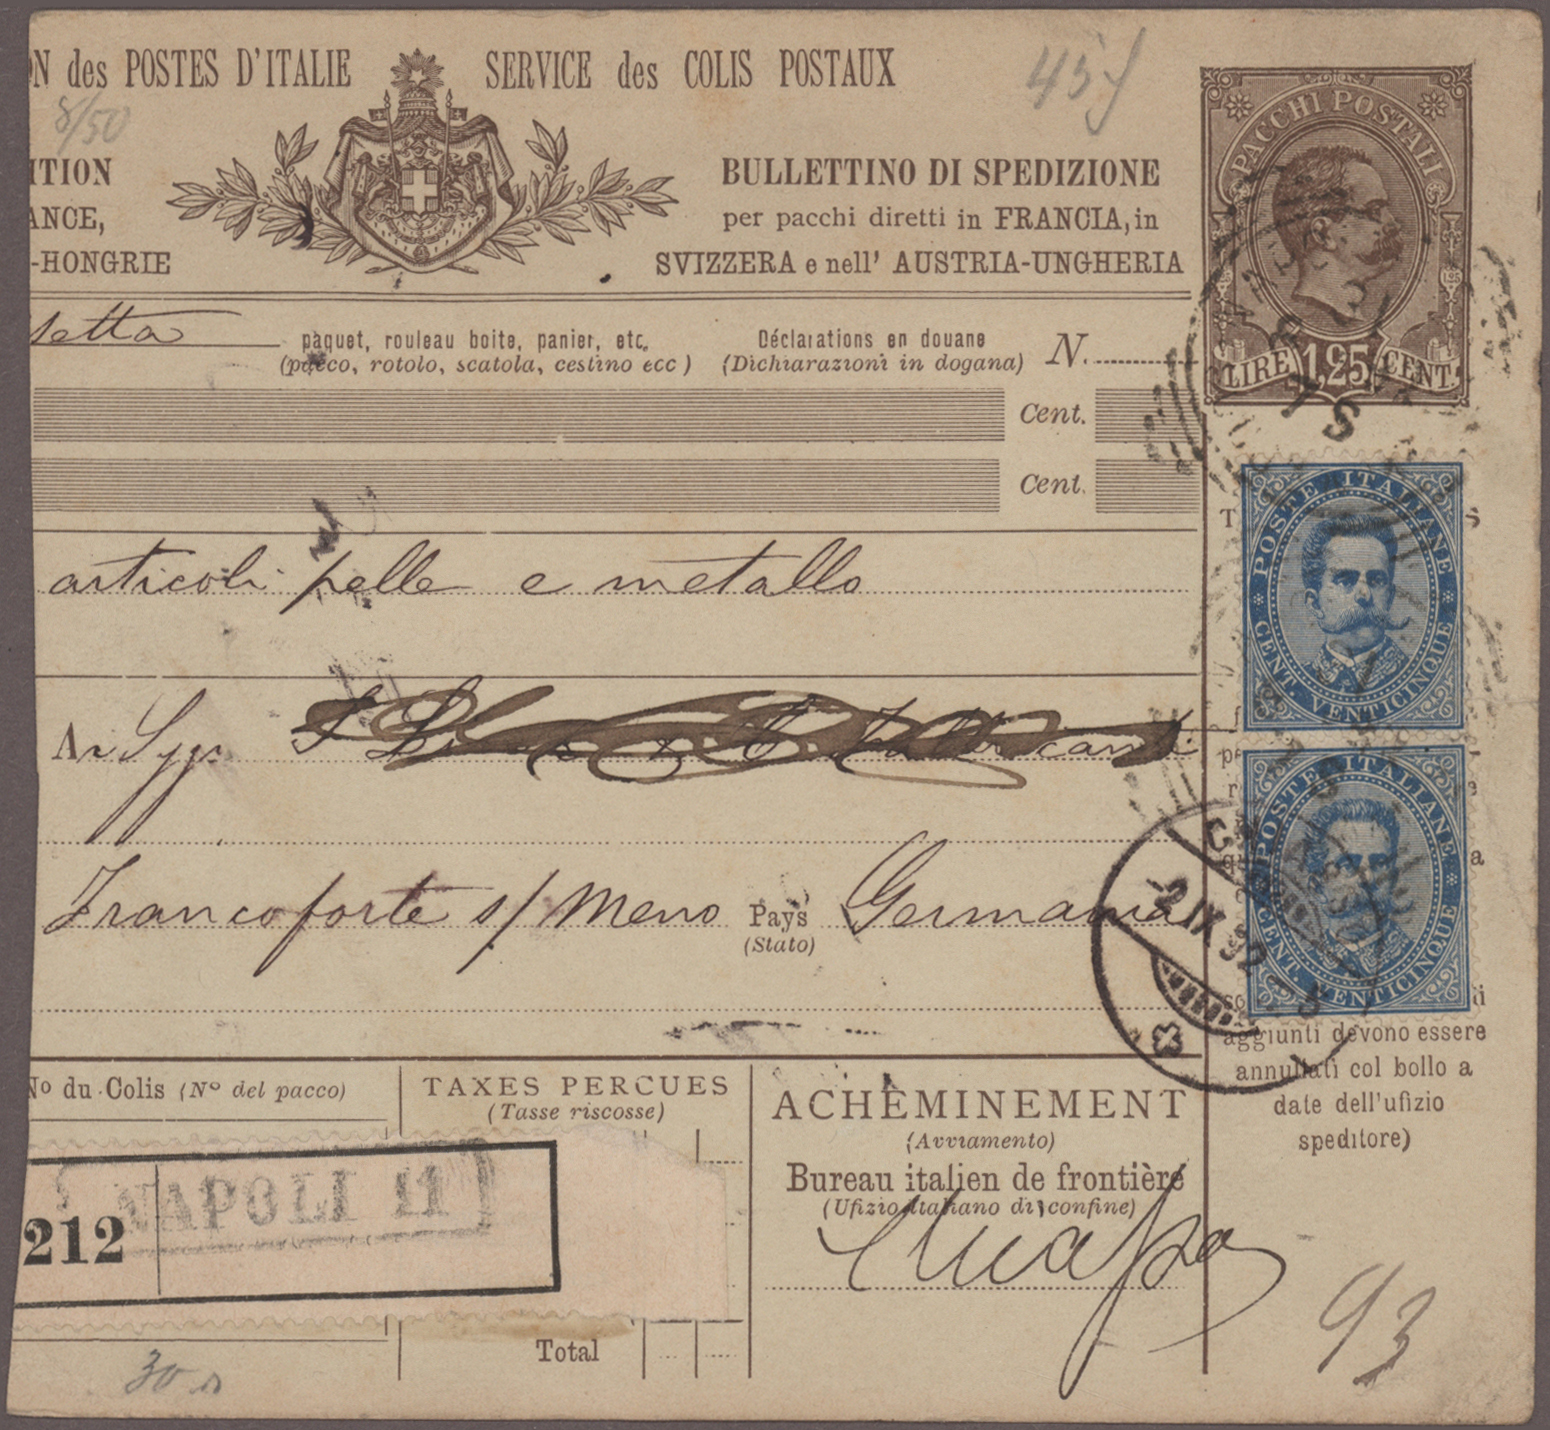 ON des POSTES D'ITALIE SERVICE des COLIS POSTAUX
8/50
45
ITION
ANCE,
-HONGRIE
BULLETTINO DI SPEDIZIONE
per pacchi diretti in FRANCIA, in
SVIZZERA e nell' AUSTRIA-UNGHERIA
PACCHI POSTALI
LIRE 1,25 CENT.
setta
paquet, rouleau boite, panier, etc.
(pacco, rotolo, scatola, cestino ecc)
Déclarations en douane
(Dichiarazioni in dogana)
N.
Cent.
Cent.
articoli pelle e metallo
POSTE ITALIANE
CENT. VENTICINQUE
POSTE ITALIANE
CENT. VENTICINQUE
Francoforte s/ Meno Pays Germania
(Stato)
2 IX
aggiunti devono essere
annullati col bollo a
date dell'ufizio
speditore)
No du Colis (No del pacco)
TAXES PERCUES
(Tasse riscosse)
ACHÈMINEMENT
(Avviamento)
Bureau italien de frontière
(Ufizio italiano di confine)
NAPOLI 11
212
Total
30
93